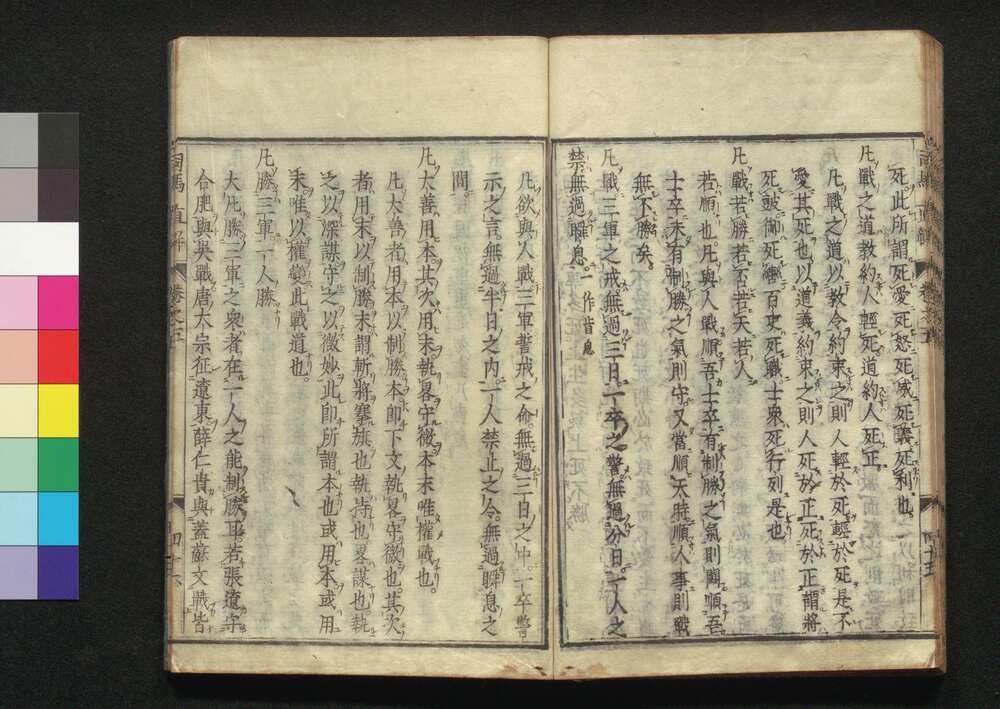 死此所謂死愛死怒死威死義死利也
凡戰之道教約人輕死道約人死正
凡戰之道以教令約束之則人輕於死輕於死是不
愛其死也以道義約束之則人死於正死於正謂將
死鼓御死轡百吏死職士衆死行列是也
凡戰若勝若否若天若人
若順也凡與人戰順吾士卒有制勝之氣則鬭順吾
士卒未有制勝之氣則守又當順天時順人事則戰
無不勝矣
凡戰三軍之戒無過三日一卒之警無過分日一人之
禁無過瞬息一作皆息
司馬直解 卷之五 四十五
凡欲與人戰三軍誓戒之命無過三日之中一卒警
示之言無過半日之內一人禁止之令無過瞬息之
間
凡大善用本其次用末執畧守微本末唯權戰也
凡大善者用本以制勝本卽下文執畧守微也其次
者用末以制勝末謂斬將搴旗也執持也畧謀也執
之以深謀守之以微妙此卽所謂本也或用本或用
末唯以權變此戰道也
凡勝三軍一人勝
大凡勝三軍之衆者在一人之能制勝耳若張遼守
合肥與吳戰唐太宗征遼東薛仁貴與蓋蘇文戰皆
司馬直解 卷之五 四十六